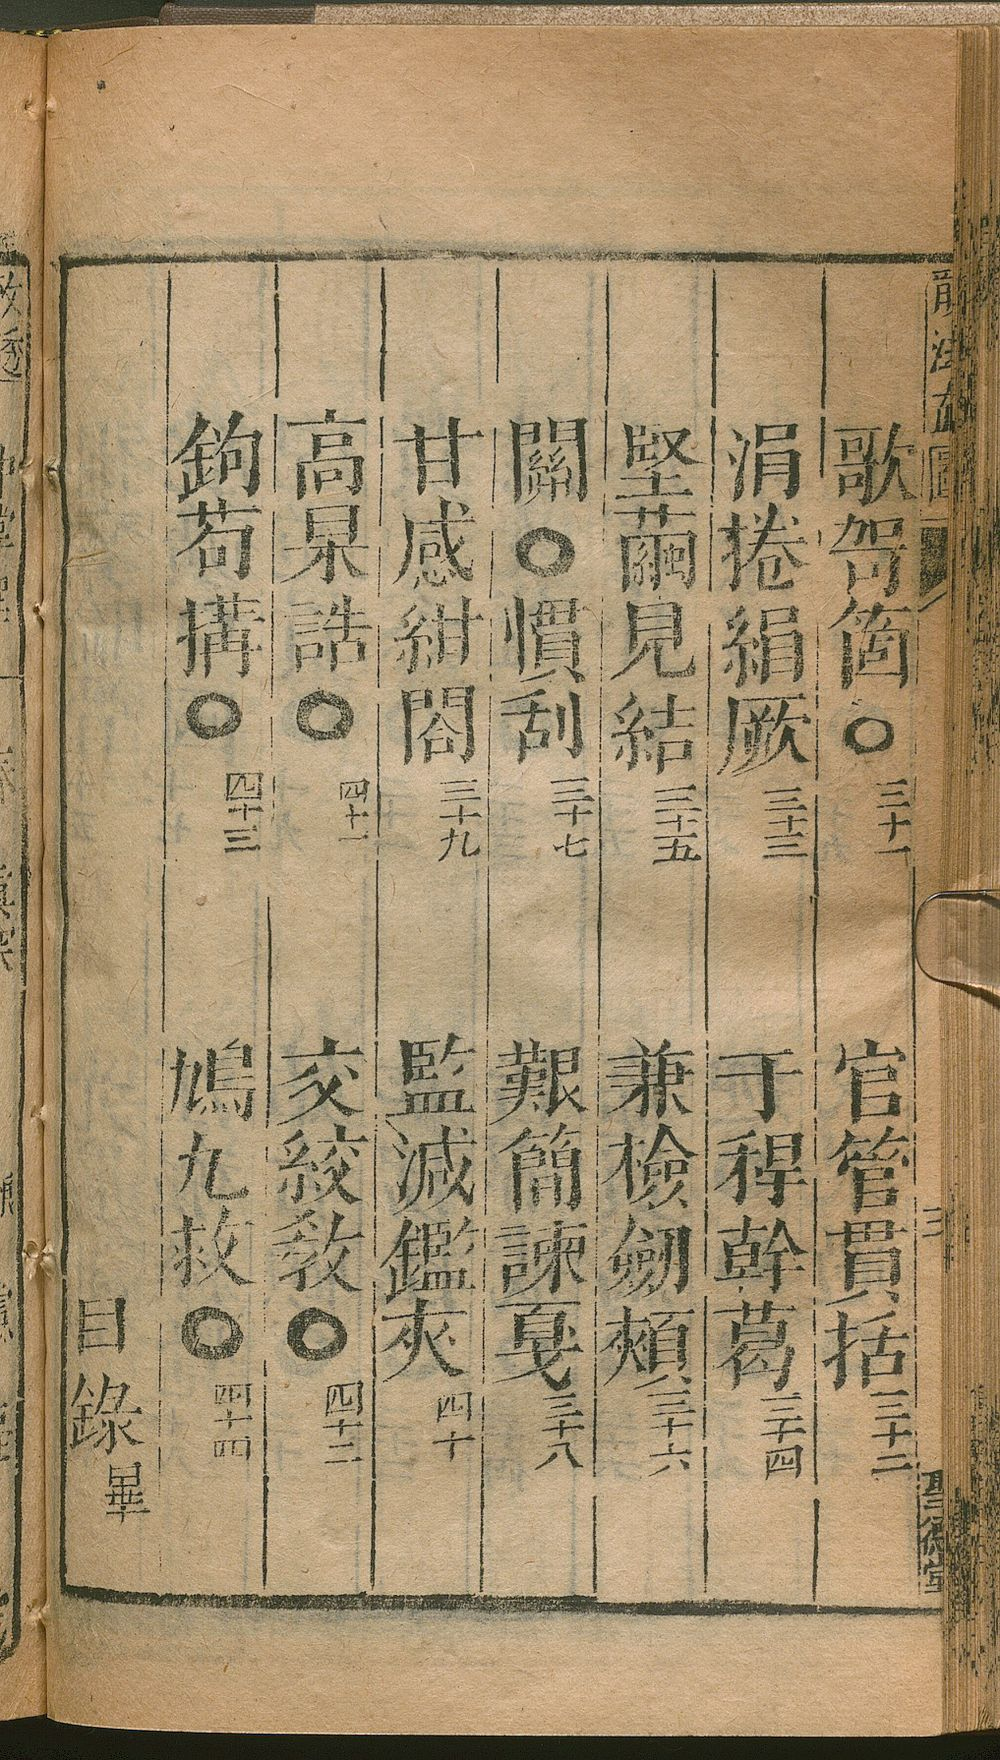 歌哿箇〇三十一
官管貫括三十二
涓捲絹厥三十三
干稈幹葛三十四
堅繭見結三十五
兼檢劒頰三十六
關〇慣刮三十七
艱簡諫戛三十八
甘感紺閤三十九
監減鑑夾四十
高杲誥〇四十一
交絞教〇四十二
鉤苟搆〇四十三
鳩九救〇四十四
目錄畢
三
聖德堂